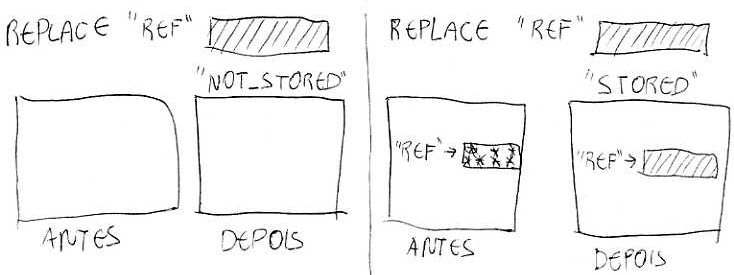 REPLACE "REF"
"NOT_STORED"
ANTES
DEPOIS
REPLACE "REF"
"STORED"
"REF"→
"REF"→
ANTES
DEPOIS